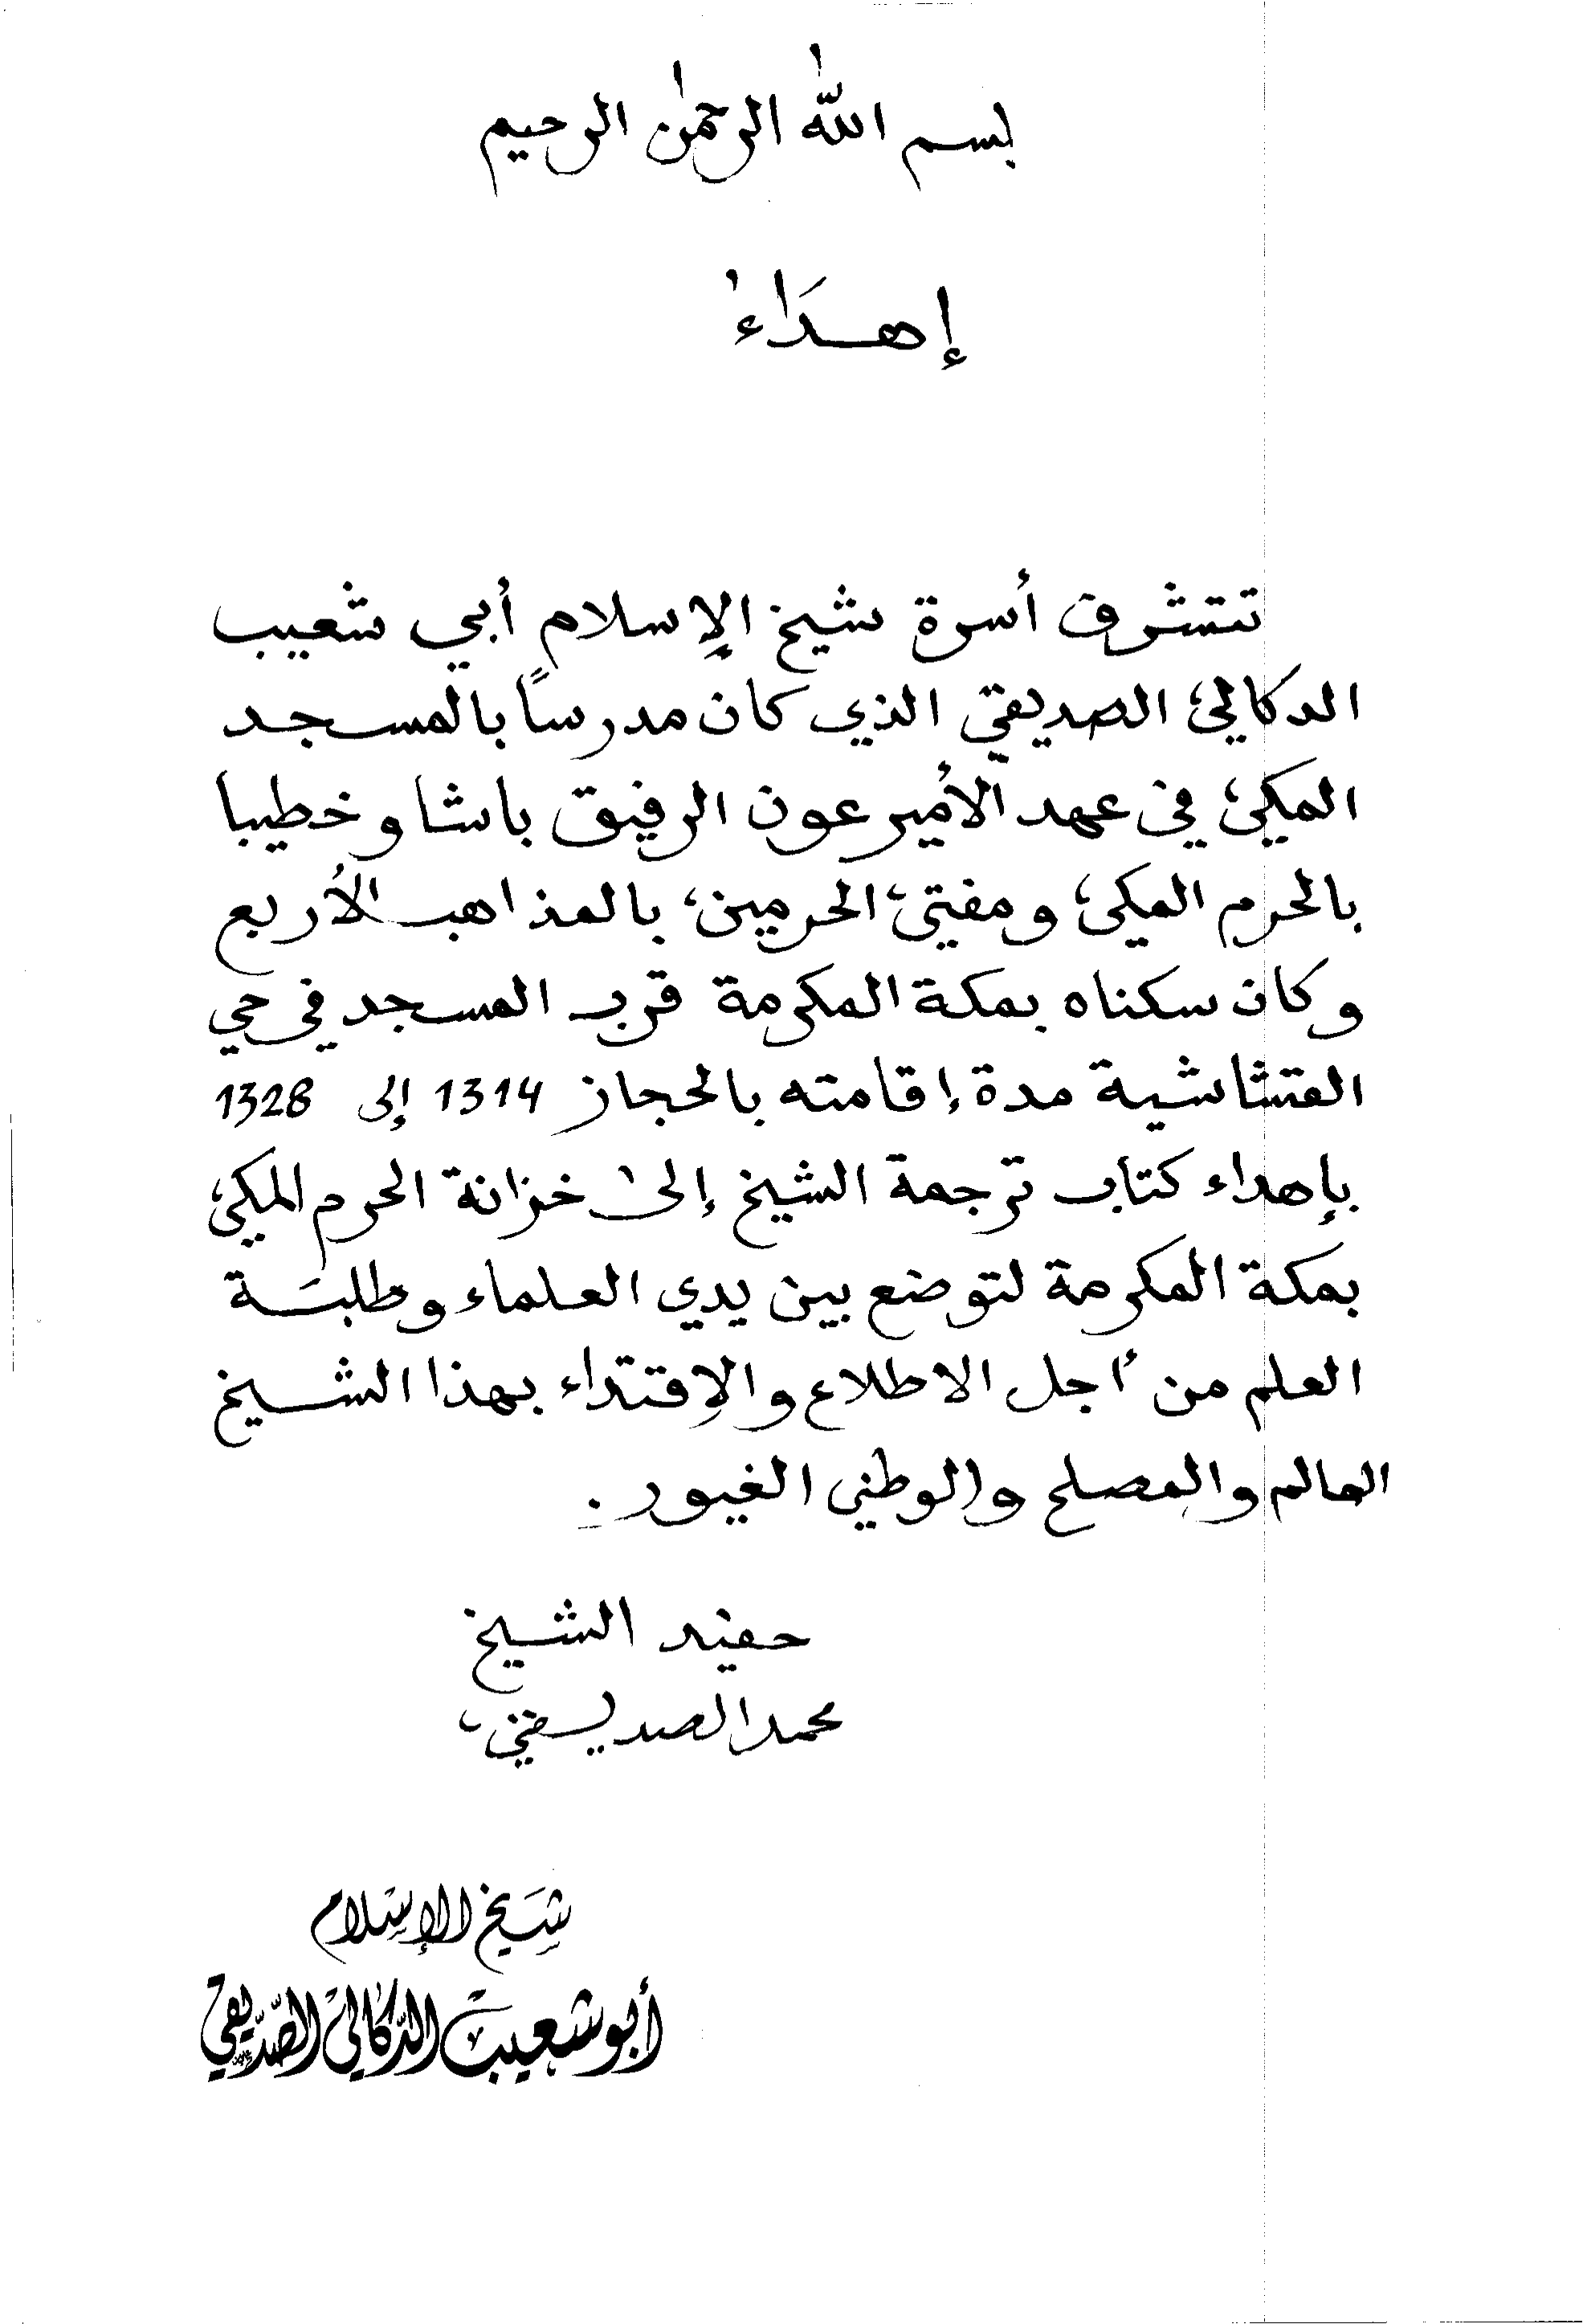 بسم الله الرحمٰن الرحيم
إهداء
تتشرف أسرة شيخ الإسلام أبي شعيب
الدكالي الصديقي الذي كان مدرساً بالمسجد
المكي في عهد الأمير عون الرفيق باشا وخطيبا
بالحرم المكي ومفتي الحرمين بالمذاهب الأربع
وكان سكناه بمكة المكرمة قرب المسجد في حي
القشاشية مدة إقامته بالحجاز 1314 إلى 1328
بإهداء كتاب ترجمة الشيخ إلى خزانة الحرم المكي
بمكة المكرمة لتوضع بين يدي العلماء وطلبَة
العلم من أجل الاطلاع والإقتداء بهذا الشيخ
العالم والمصلح والوطني الغيور.
حفيد الشيخ
محمد الصديقي
شَيخ الإسلام
أبو شعيب الدّكالي الصّدّيقي